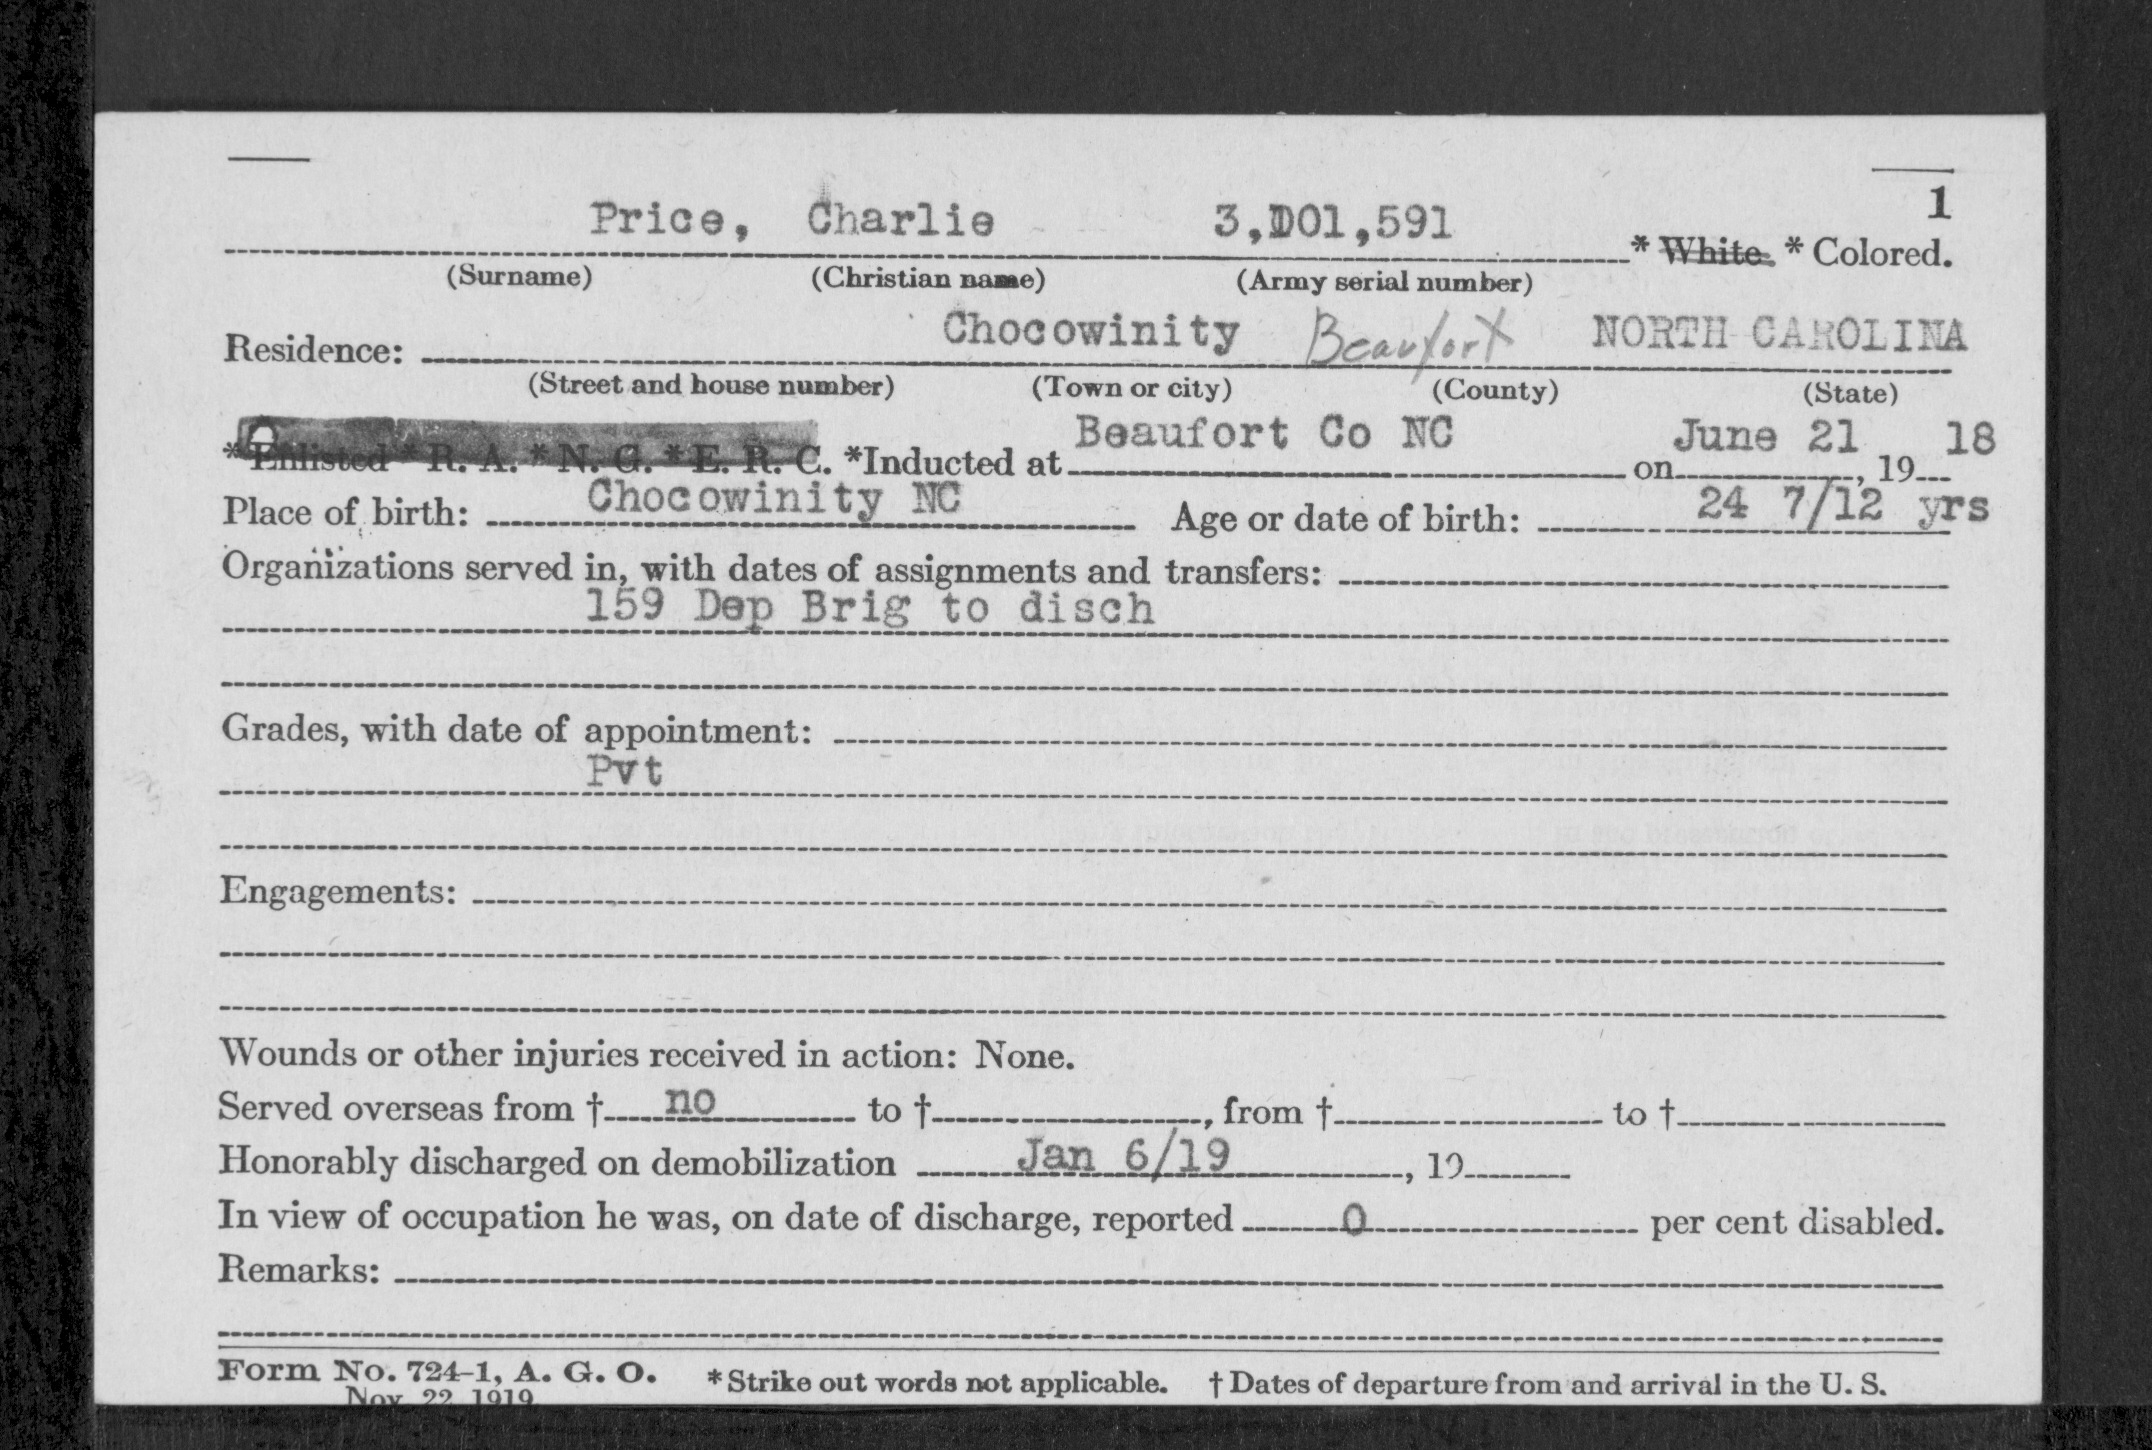 1
Price, Charlie 3,101,591 * White. * Colored.
(Surname) (Christian name) (Army serial number)
Residence: Chocowinity Beaufort NORTH CAROLINA
(Street and house number) (Town or city) (County) (State)
* Enlisted * R. A. * N. G. * E. R. C. *Inducted at Beaufort Co NC on June 21, 19 18
Place of birth: Chocowinity NC Age or date of birth: 24 7/12 yrs
Organizations served in, with dates of assignments and transfers:
159 Dep Brig to disch
Grades, with date of appointment:
Pvt
Engagements:
Wounds or other injuries received in action: None.
Served overseas from † no to †, from † to †
Honorably discharged on demobilization Jan 6/19, 19
In view of occupation he was, on date of discharge, reported 0 per cent disabled.
Remarks:
Form No. 724-1, A. G. O. * Strike out words not applicable. † Dates of departure from and arrival in the U. S.
Nov. 22, 1919